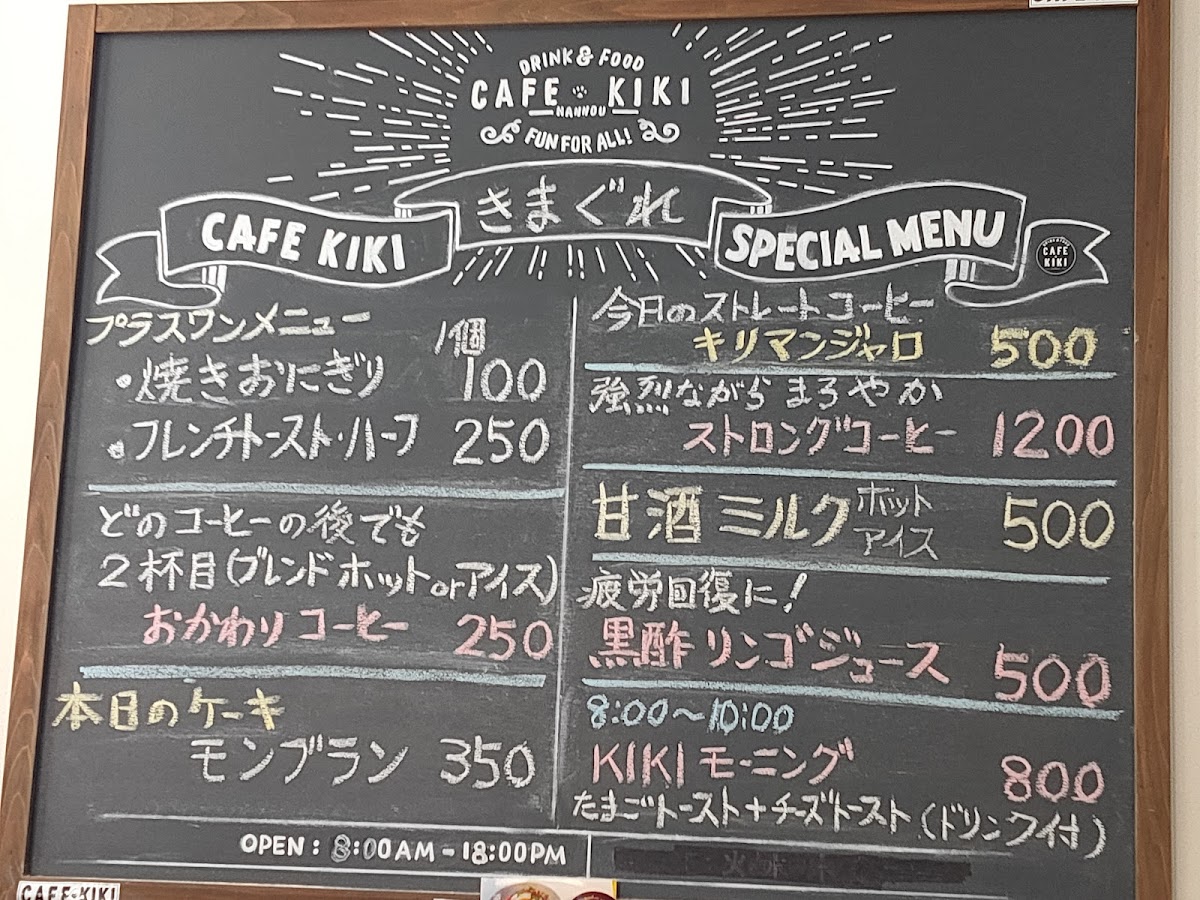 DRINK & FOOD
CAFE KIKI
HANNOU
FUN FOR ALL!
CAFE KIKI
きまぐれ
SPECIAL MENU
CAFE
KIKI
プラスワンメニュー
/個
・焼きおにぎり 100
・フレンチトースト・ハーフ 250
どのコーヒーの後でも
2杯目(ブレンドホットorアイス)
おかわりコーヒー 250
本日のケーキ
モンブラン 350
今日のストレートコーヒー
キリマンジャロ 500
強烈ながらまろやか
ストロングコーヒー 1200
甘酒ミルク ホット アイス 500
疲労回復に!
黒酢リンゴジュース 500
8:00〜10:00
KIKIモーニング 800
たまごトースト+チーズトースト(ドリンク付)
OPEN: 8:00AM-18:00PM
CAFE KIKI